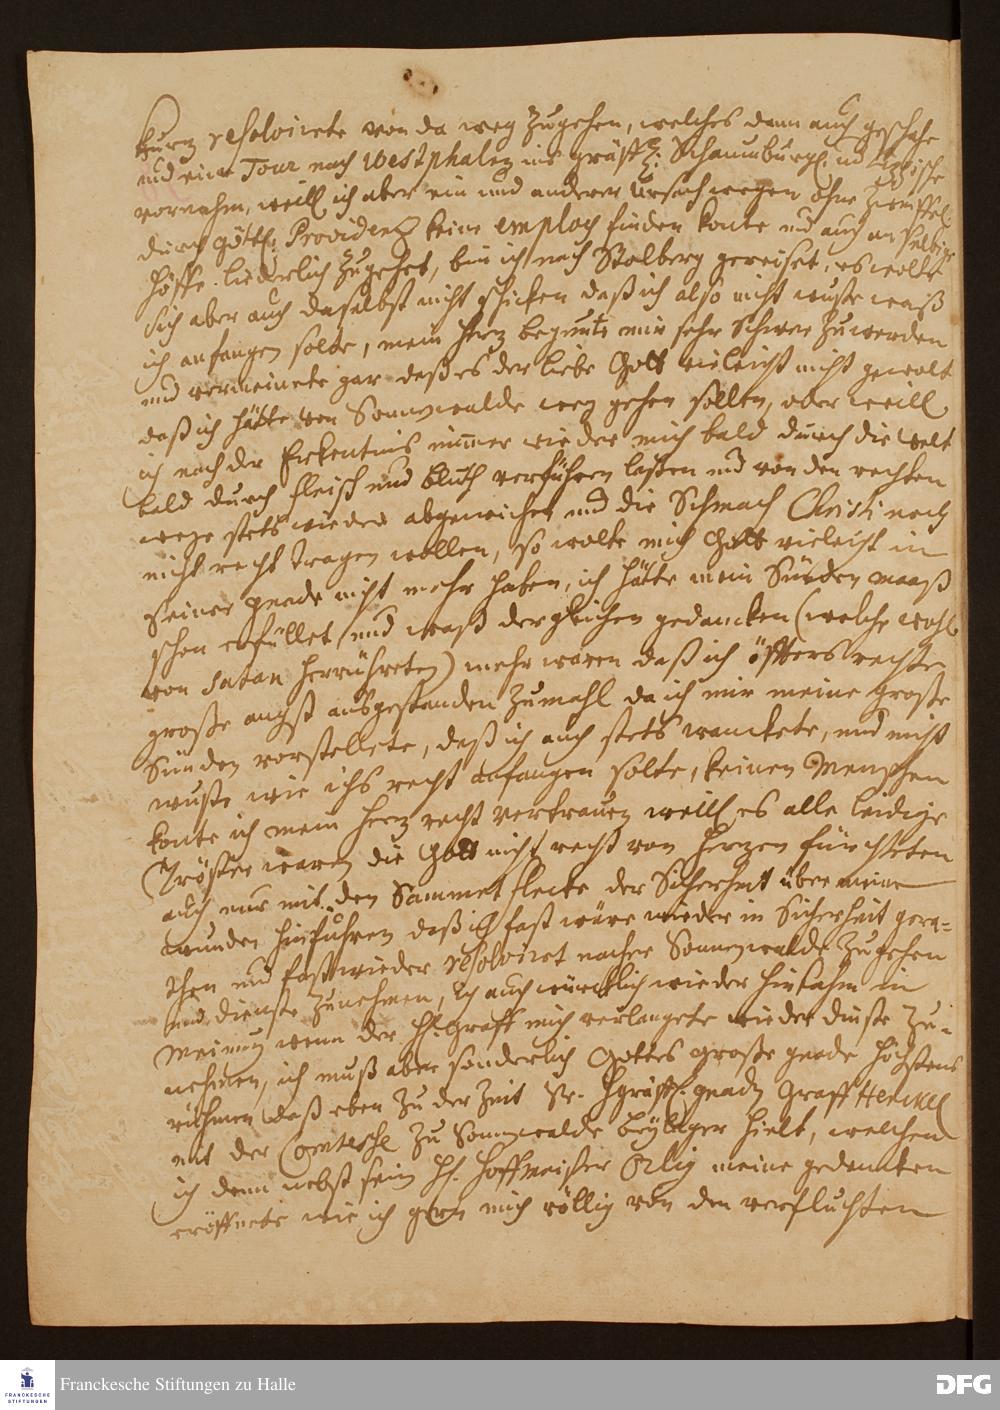 kurz resolvirete von da weg zugehen, welches dann auch geschahe
und eine Tour nach Westphalen ins gräffl: Schaumburgl. und Lippische
vornahm, weill ich aber ein und anderer Ursach wegen ohne Zweiffel
durch göttl: Providenz keine employ finden konte und auch an selbigen
Höffe liederlich zugehet, bin ich nach Stolberg gereiset, es wolte
sich aber auch daselbst nicht schicken daß ich also nicht wuste waß
ich anfangen solte, mein Herz begunte mir sehr schwer zu werden
und vermeinete gar daß es der liebe Gott vieleicht nicht gewolt
daß ich hätte von Sonnewalde weg gehen sollen, oder weill
ich nach der Erkentnis immer wieder mich bald durch die Welt
bald durch Fleisch und Bluth verführen laßen und von den rechten
wege stets wieder abgewichen und die Schmach Christi noch
nicht recht tragen wollen, so wolte mich Gott vieleicht in
seiner gnade nicht mehr haben, ich hätte mein Sünden maaß
schon erfüllet, und waß dergleichen gedancken (welche wohl
von Satan herrühreten) mehr waren daß ich öffters rechte
große angst ausgestanden zumahl da ich mir meine große
Sünden vorstellete, daß ich auch stets wanckete, und nicht
wuste wie ichs recht anfangen solte, keinen Menschen
konte ich mein Herz recht vertrauen weill es alle leidige
Tröster waren die Gott nicht recht von Herzen fürchteten
auch nur mit den Sammet flecke der Sicherheit über meine
wunden hinfuhren daß ich fast wäre wieder in Sicherheit gera-
then und fast wieder resolviret nacher Sonnewalde zugehen
und dienste zunehmen, ich auch würcklich wieder hinkahm in
Meinung wenn der H. Graff mich verlangete wieder dinste zu-
nehmen, ich muß aber sonderlich Gottes große gnade höchstens
rühmen daß eben zu der Zeit Sr. Hgräffl. gnadn Graff Henckel
mit der Comtesse zu Sonnewalde beylager hielt, welchen
ich denn nebst sein H. Hoffmeister meine gedancken
eröffnete wie ich gern mich völlig von den verfluchten
Franckesche Stiftungen zu Halle
FRANCKESCHE
STIFTUNGEN
DFG